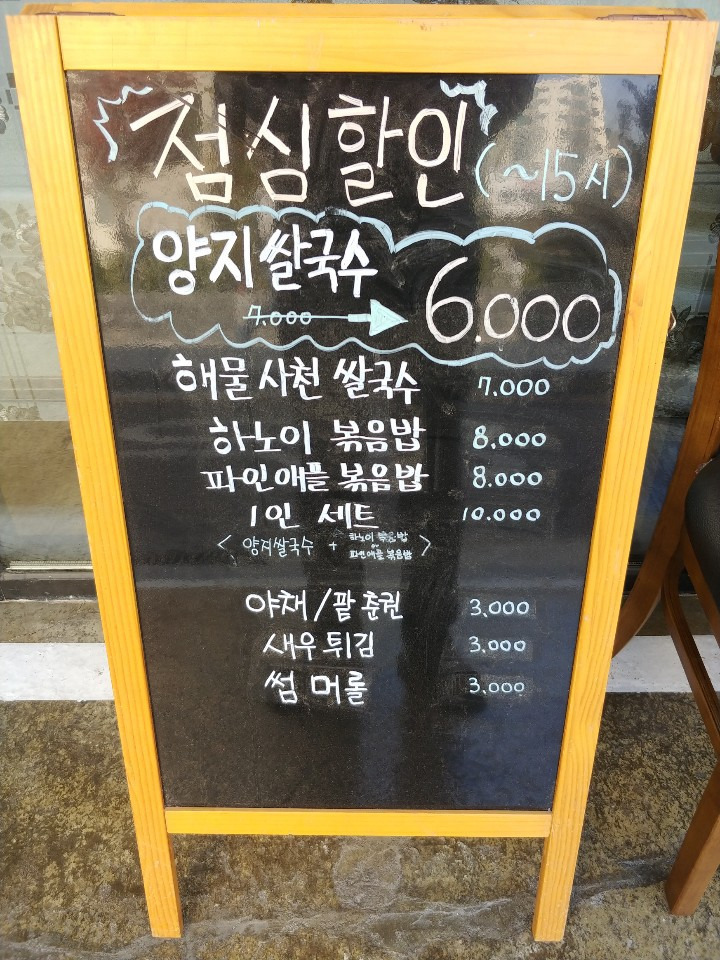 점심할인 (~15시)
양지쌀국수
7.000 → 6.000
해물 사천 쌀국수 7.000
하노이 볶음밥 8.000
파인애플 볶음밥 8.000
1인 세트 10.000
< 양지쌀국수 + 하노이 볶음밥 or 파인애플 볶음밥 >
야채/팥 춘권 3.000
새우 튀김 3.000
썸 머롤 3.000